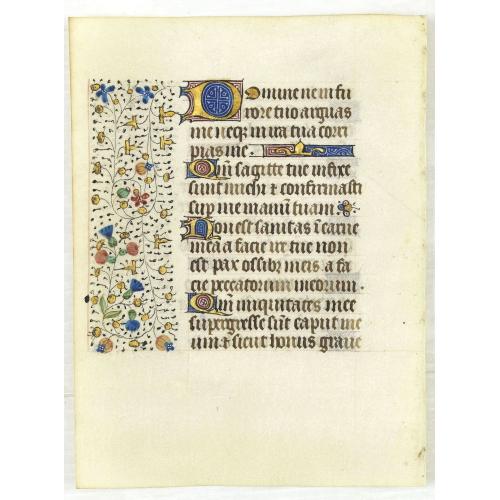 Domine ne in fu
rore tuo arguas
me neq; in ira tua corri
pias me.
Qm̄ sagitte tue infixe
sunt michi ⁊ confirmasti
sup̄ me manum̄ tuam.
Non est sanitas in carne
mea a facie ire tue non
est pax ossib; meis a fa
cie peccatorum meorum.
Qm̄ iniquitates mee
supergresse sūt caput me
um ⁊ sicut honus graue